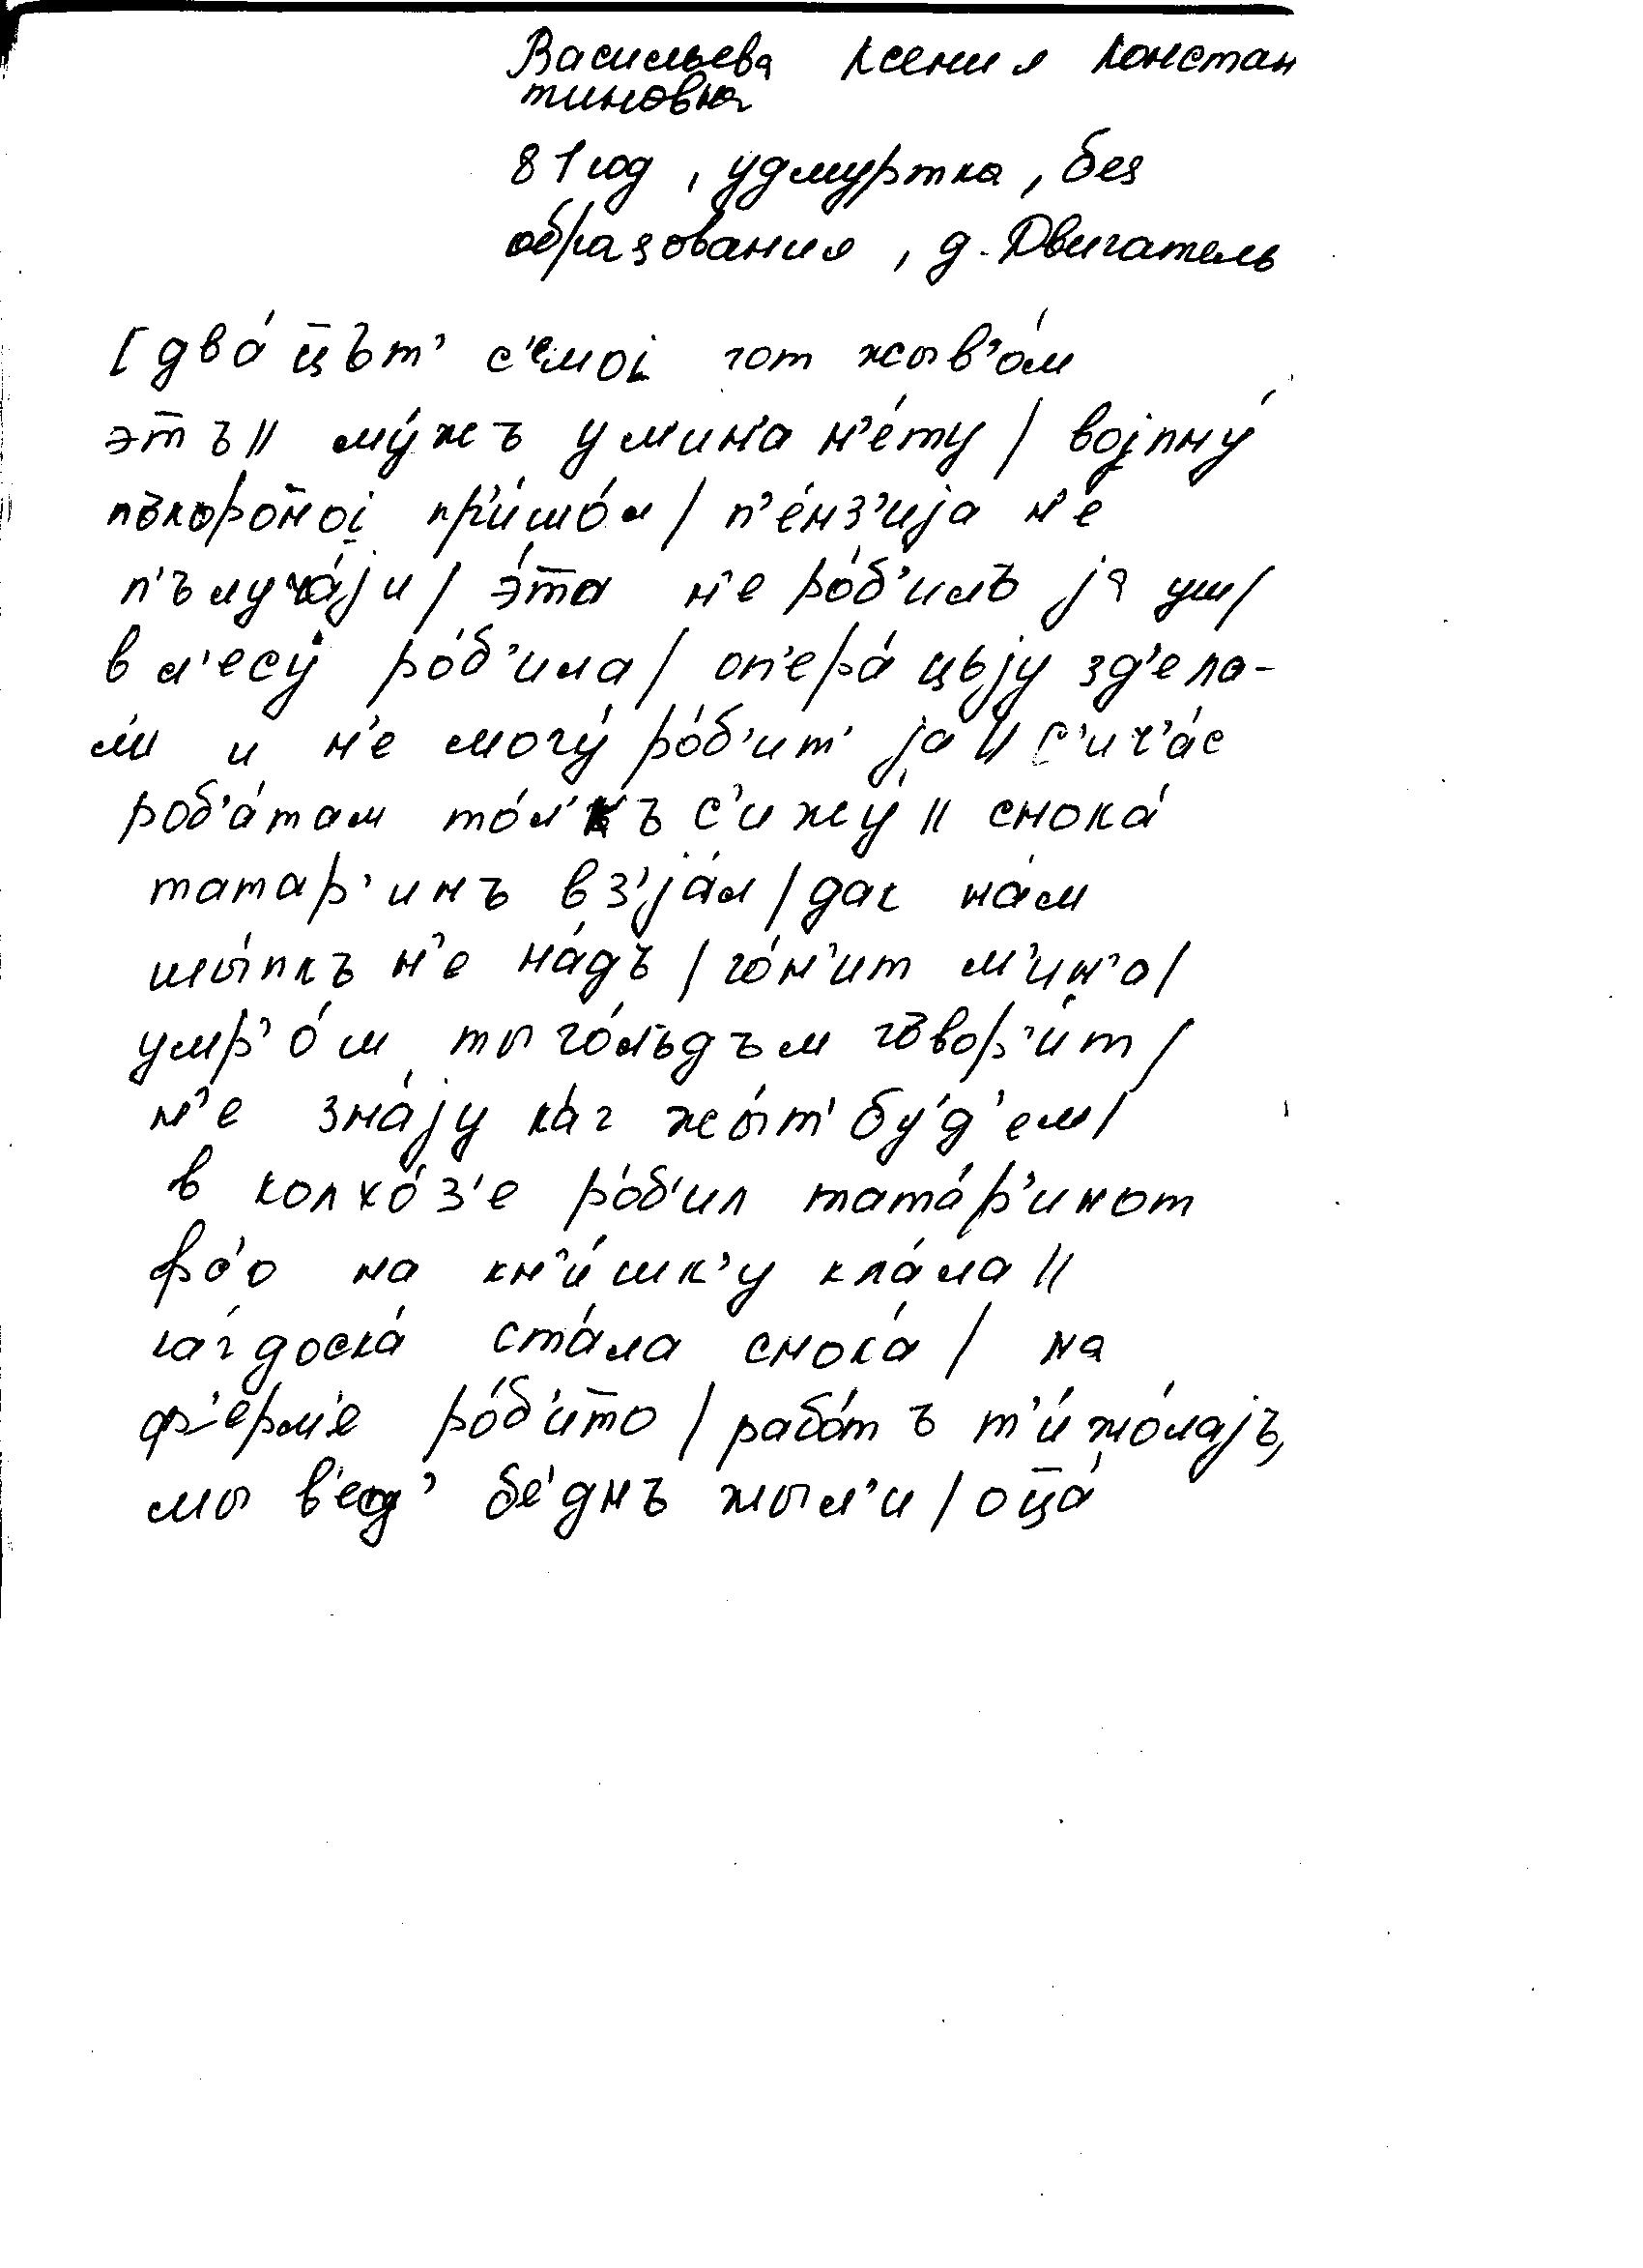 Васильева Ксения Констан
тиновна
81 год, удмуртка, без
образования, д. Двигатель
[два́ц̅ът' с'емоі гот жыв'о́м
эт̅ъ // му́жъ у мин'а н'е́ту / војну́
пъхоро̅ноі пр'ишо́л / п'е́нз'иjа н'е
п'ълуча́jи / э́т̅а н'е ро́б'илъ jа уш /
в л'есу́ ро́б'ила / оп'ера́цыjу зд'ела-
ли и н'е могу́ ро́б'ит' jа // с'ич'а́с
роб'а́там то́л'къ с'ижу́ // снока́
татар'инъ вз'jа́л / дак на́м
шы́пкъ н'е на́дъ / го́н'ит м'ин'а /
умр'о́ш ты го́лъдъм гъвор'и́т /
н'е зна́jу ка́г жы́т' бу́д'ем /
в колхо́з'е ро́б'ил тата́р'инот
фо́о на кн'и́шк'у кла́ла //
ка́г доска́ ста́ла снока́ / на
ф'ерм'е ро́б'ит̅о / рабо́тъ т'ижо́лаjъ,
мы в'ед' бе́днъ жыл'и / оц̅а́